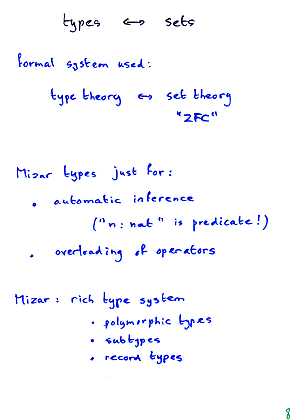 types ↔ sets
formal system used:
type theory ↔ set theory
"ZFC"
Mizar types just for:
• automatic inference
("n: nat" is predicate!)
• overloading of operators
Mizar: rich type system
• polymorphic types
• subtypes
• record types
8